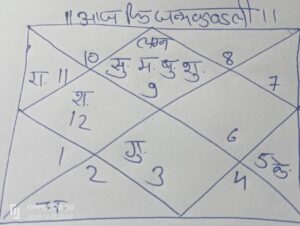 ॥ आज कि जन्मकुंडली ॥
लग्न
10 सु म. बु शु. 8
रा. 11 9 7
श. 12
6
1 गु. 5 के.
2 3 4